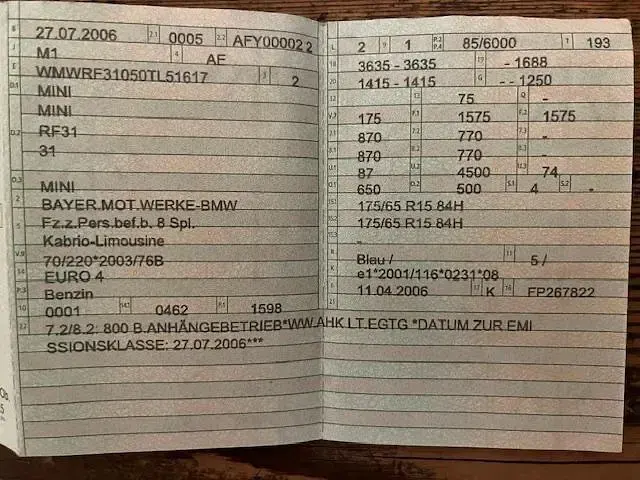 B 27.07.2006 2.1 0005 2.2 AFY00002 2
J M1 4 AF
E WMWRF31050TL51617 3 2
D.1 MINI
MINI
D.2 RF31
31
D.3 MINI
2 BAYER.MOT.WERKE-BMW
5 Fz.z.Pers.bef.b. 8 Spl.
Kabrio-Limousine
V.9 70/220*2003/76B
14 EURO 4
P.3 Benzin
10 0001 14.1 0462 P.1 1598
22 7.2/8.2: 800 B.ANHÄNGEBETRIEB*WW.AHK LT.EGTG *DATUM ZUR EMI
SSIONSKLASSE: 27.07.2006***
L 2 9 1 P.2 P.4 85/6000 T 193
18 3635 - 3635 19 - 1688
20 1415 - 1415 G - - 1250
12 - 13 75 Q -
V.7 175 F.1 1575 F.2 1575
7.1 870 7.2 770 7.3 -
8.1 870 8.2 770 8.3 -
U.1 87 U.2 4500 U.3 74
O.1 650 O.2 500 S.1 4 S.2 -
15.1 175/65 R15 84H
15.2 175/65 R15 84H
15.3 -
R Blau / 11 5 /
K e1*2001/116*0231*08
6 11.04.2006 17 K 16 FP267822
21